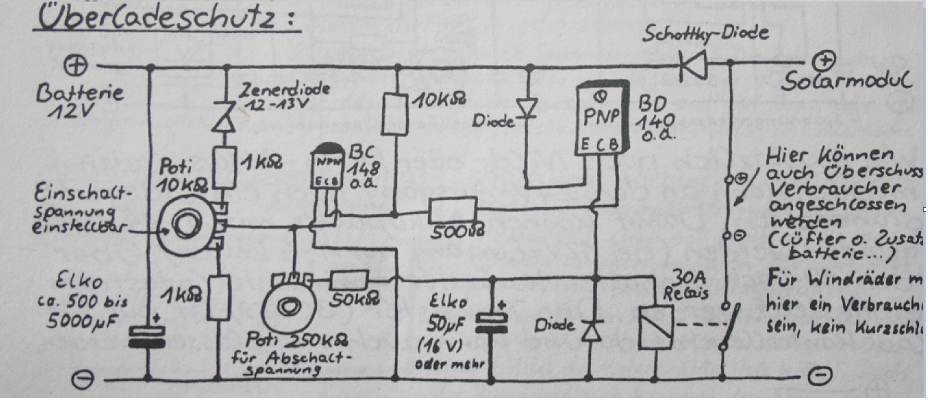 Überladeschutz:
Schottky-Diode
+
+
Batterie
12V
Solarmodul
Zenerdiode
12-13V
10kΩ
Diode
PNP
E C B
BD
140
o.ä.
NPN
E C B
BC
148
o.ä.
1kΩ
Poti
10kΩ
Einschalt-
spannung
einstellbar
500Ω
Hier können
auch Überschuss
Verbraucher
angeschlossen
werden
(Lüfter o. Zusat
batterie...)
+
-
Für Windräder m
hier ein Verbrauch
sein, kein Kurzschl
Elko
ca. 500 bis
5000µF
+
1kΩ
50kΩ
Poti 250kΩ
für Abschalt-
spannung
Elko
50µF
(16V)
oder mehr
+
Diode
30A
Relais
-
-